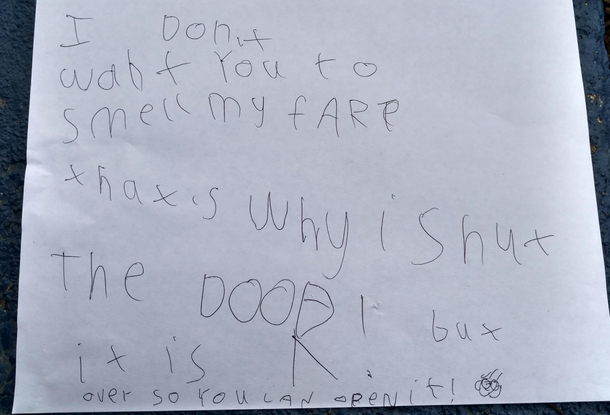 I Don't
waht You to
smell my fART
that's Why i Shut
The DOOR! but
it is
over so YOU CAN OPEN it!